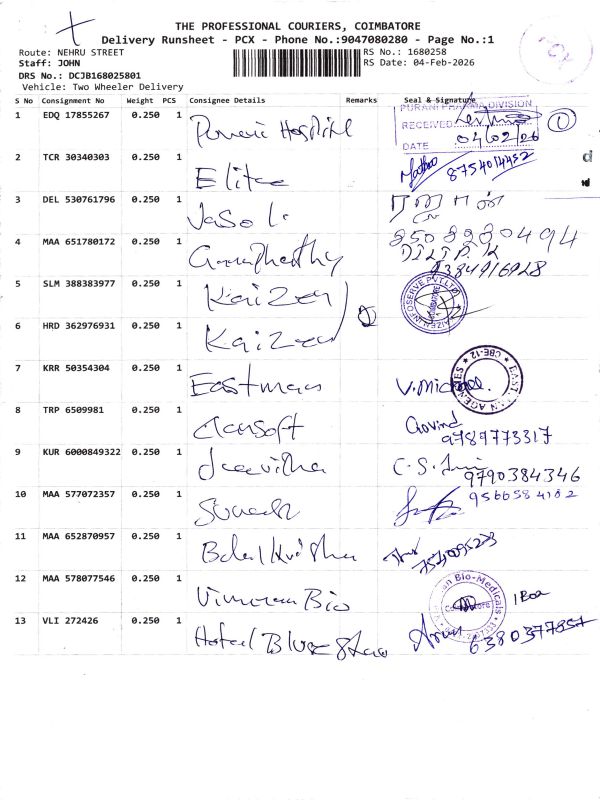 THE PROFESSIONAL COURIERS, COIMBATORE
Delivery Runsheet - PCX - Phone No.:9047080280 - Page No.:1
Route: NEHRU STREET
RS No.: 1680258
Staff: JOHN
RS Date: 04-Feb-2026
DRS No.: DCJB168025801
Vehicle: Two Wheeler Delivery
S No Consignment No Weight PCS Consignee Details Remarks Seal & Signature
PURANI PHARMA DIVISION
1 EDQ 17855267 0.250 1 Purani Hospital
RECEIVED
1
DATE 04/02/26
2 TCR 30340303 0.250 1 Elitee
8754014452
3 DEL 530761796 0.250 1
4 MAA 651780172 0.250 1
8508280494
DILIP.K
9384916928
5 SLM 388383977 0.250 1 Kaizen
6 HRD 362976931 0.250 1 Kaizen
7 KRR 50354304 0.250 1 Eastman V.Michael.
CBE-12
8 TRP 6509981 0.250 1 Clansoft Govind
9789773317
9 KUR 6000849322 0.250 1 Jeevitha C.S.
9790384346
10 MAA 577072357 0.250 1 Suresh
9566584102
11 MAA 652870957 0.250 1 Balal Krishna
12 MAA 578077546 0.250 1 Vimeran Bio
Bio-Medicals
1 Box
13 VLI 272426 0.250 1 Hotel Blue Star Arun
6380377857